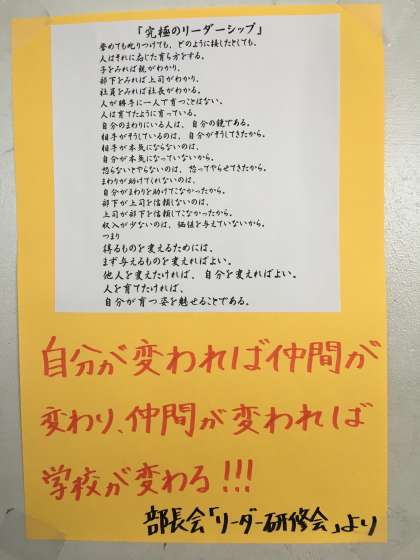 「究極のリーダーシップ」
誉めても叱りつけても、どのように接したとしても、
人はそれに応じた育ち方をする。
子をみれば親がわかり、
部下をみれば上司がわかり、
社員をみれば社長がわかる。
人が勝手に一人で育つことはない。
人は育てたように育っている。
自分のまわりにいる人は、自分の鏡である。
相手がそうしているのは、自分がそうしてきたから。
相手が本気にならないのは、
自分が本気になっていないから。
怒らないとやらないのは、怒ってやらせてきたから。
まわりが助けてくれないのは、
自分がまわりを助けてこなかったから。
部下が上司を信頼しないのは、
上司が部下を信頼してこなかったから。
収入が少ないのは、価値を与えていないから。
つまり
得るものを変えるためには、
まず与えるものを変えればよい。
他人を変えたければ、自分を変えればよい。
人を育てたければ、
自分が育つ姿を魅せることである。
自分が変われば仲間が
変わり、仲間が変われば
学校が変わる!!!
部長会「リーダー研修会」より